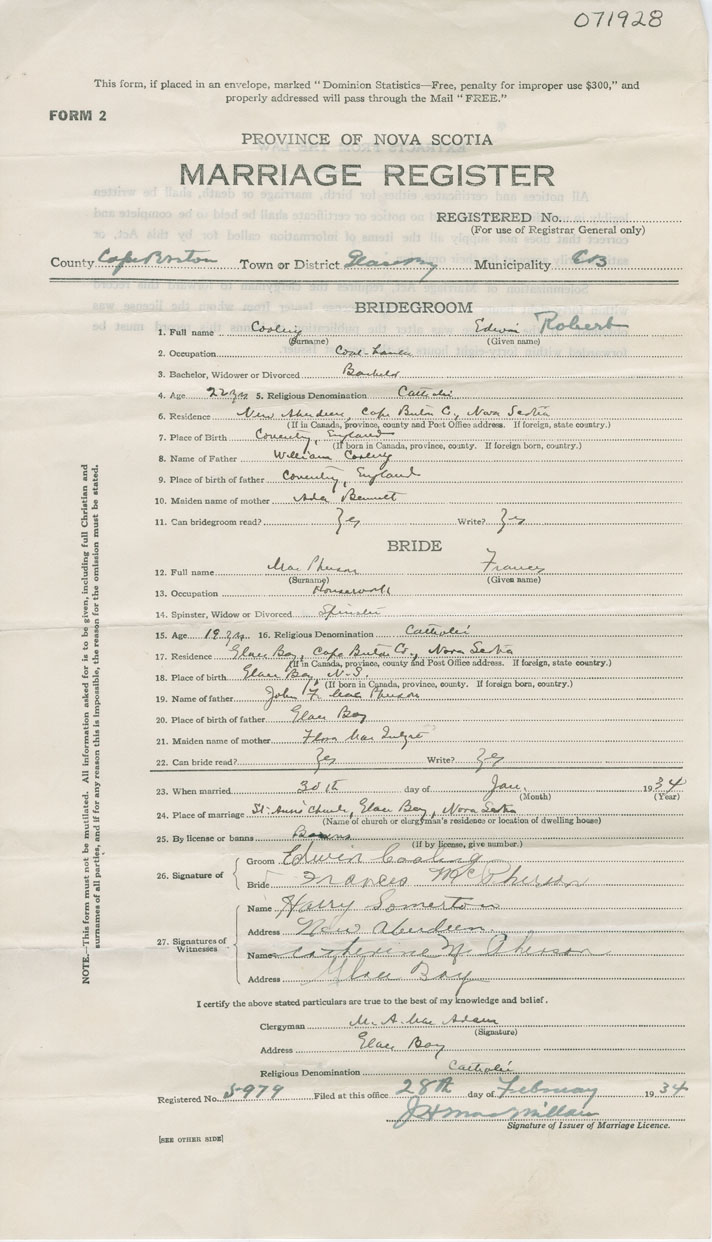 071928
This form, if placed in an envelope, marked "Dominion Statistics—Free, penalty for improper use $300," and
properly addressed will pass through the Mail "FREE."
FORM 2
PROVINCE OF NOVA SCOTIA
MARRIAGE REGISTER
REGISTERED No.
(For use of Registrar General only)
County Cape Breton Town or District Glace Bay Municipality CB
BRIDEGROOM
1. Full name Cooling Edwin Robert
(Surname) (Given name)
2. Occupation Coal-
3. Bachelor, Widower or Divorced Bachelor
4. Age 22 yrs 5. Religious Denomination Catholic
6. Residence New Aberdeen, Cape Breton Co., Nova Scotia
(If in Canada, province, county and Post Office address. If foreign, state country.)
7. Place of Birth Coventry, England
(If born in Canada, province, county. If foreign born, country.)
8. Name of Father William Cooling
9. Place of birth of father Coventry, England
10. Maiden name of mother Ada Bennett
11. Can bridegroom read? Yes Write? Yes
BRIDE
12. Full name MacPherson Frances
(Surname) (Given name)
13. Occupation Housework
14. Spinster, Widow or Divorced Spinster
15. Age 19 yrs. 16. Religious Denomination Catholic
17. Residence Glace Bay, Cape Breton Co., Nova Scotia
(If in Canada, province, county and Post Office address. If foreign, state country.)
18. Place of birth Glace Bay, N.S.
(If born in Canada, province, county. If foreign born, country.)
19. Name of father John F. MacPherson
20. Place of birth of father Glace Bay
21. Maiden name of mother Flora Mac
22. Can bride read? Yes Write? Yes
23. When married 30th day of Jan. 1934
(Month) (Year)
24. Place of marriage St. Ann's Church, Glace Bay, Nova Scotia
(Name of church or clergyman's residence or location of dwelling house)
25. By license or banns Banns
(If by license, give number.)
26. Signature of Groom Edwin Cooling
Bride Frances McPherson
27. Signatures of Witnesses Name Harry Somerton
Address New Aberdeen
Name Catherine McPherson
Address Glace Bay
I certify the above stated particulars are true to the best of my knowledge and belief.
Clergyman M. A. MacAdam
(Signature)
Address Glace Bay
Religious Denomination Catholic
Registered No. 5979 Filed at this office 28th day of February 1934
J H MacMillan
Signature of Issuer of Marriage Licence.
[SEE OTHER SIDE]
NOTE.—This form must not be mutilated. All information asked for is to be given, including full Christian and
surnames of all parties, and if for any reason this is impossible, the reason for the omission must be stated.